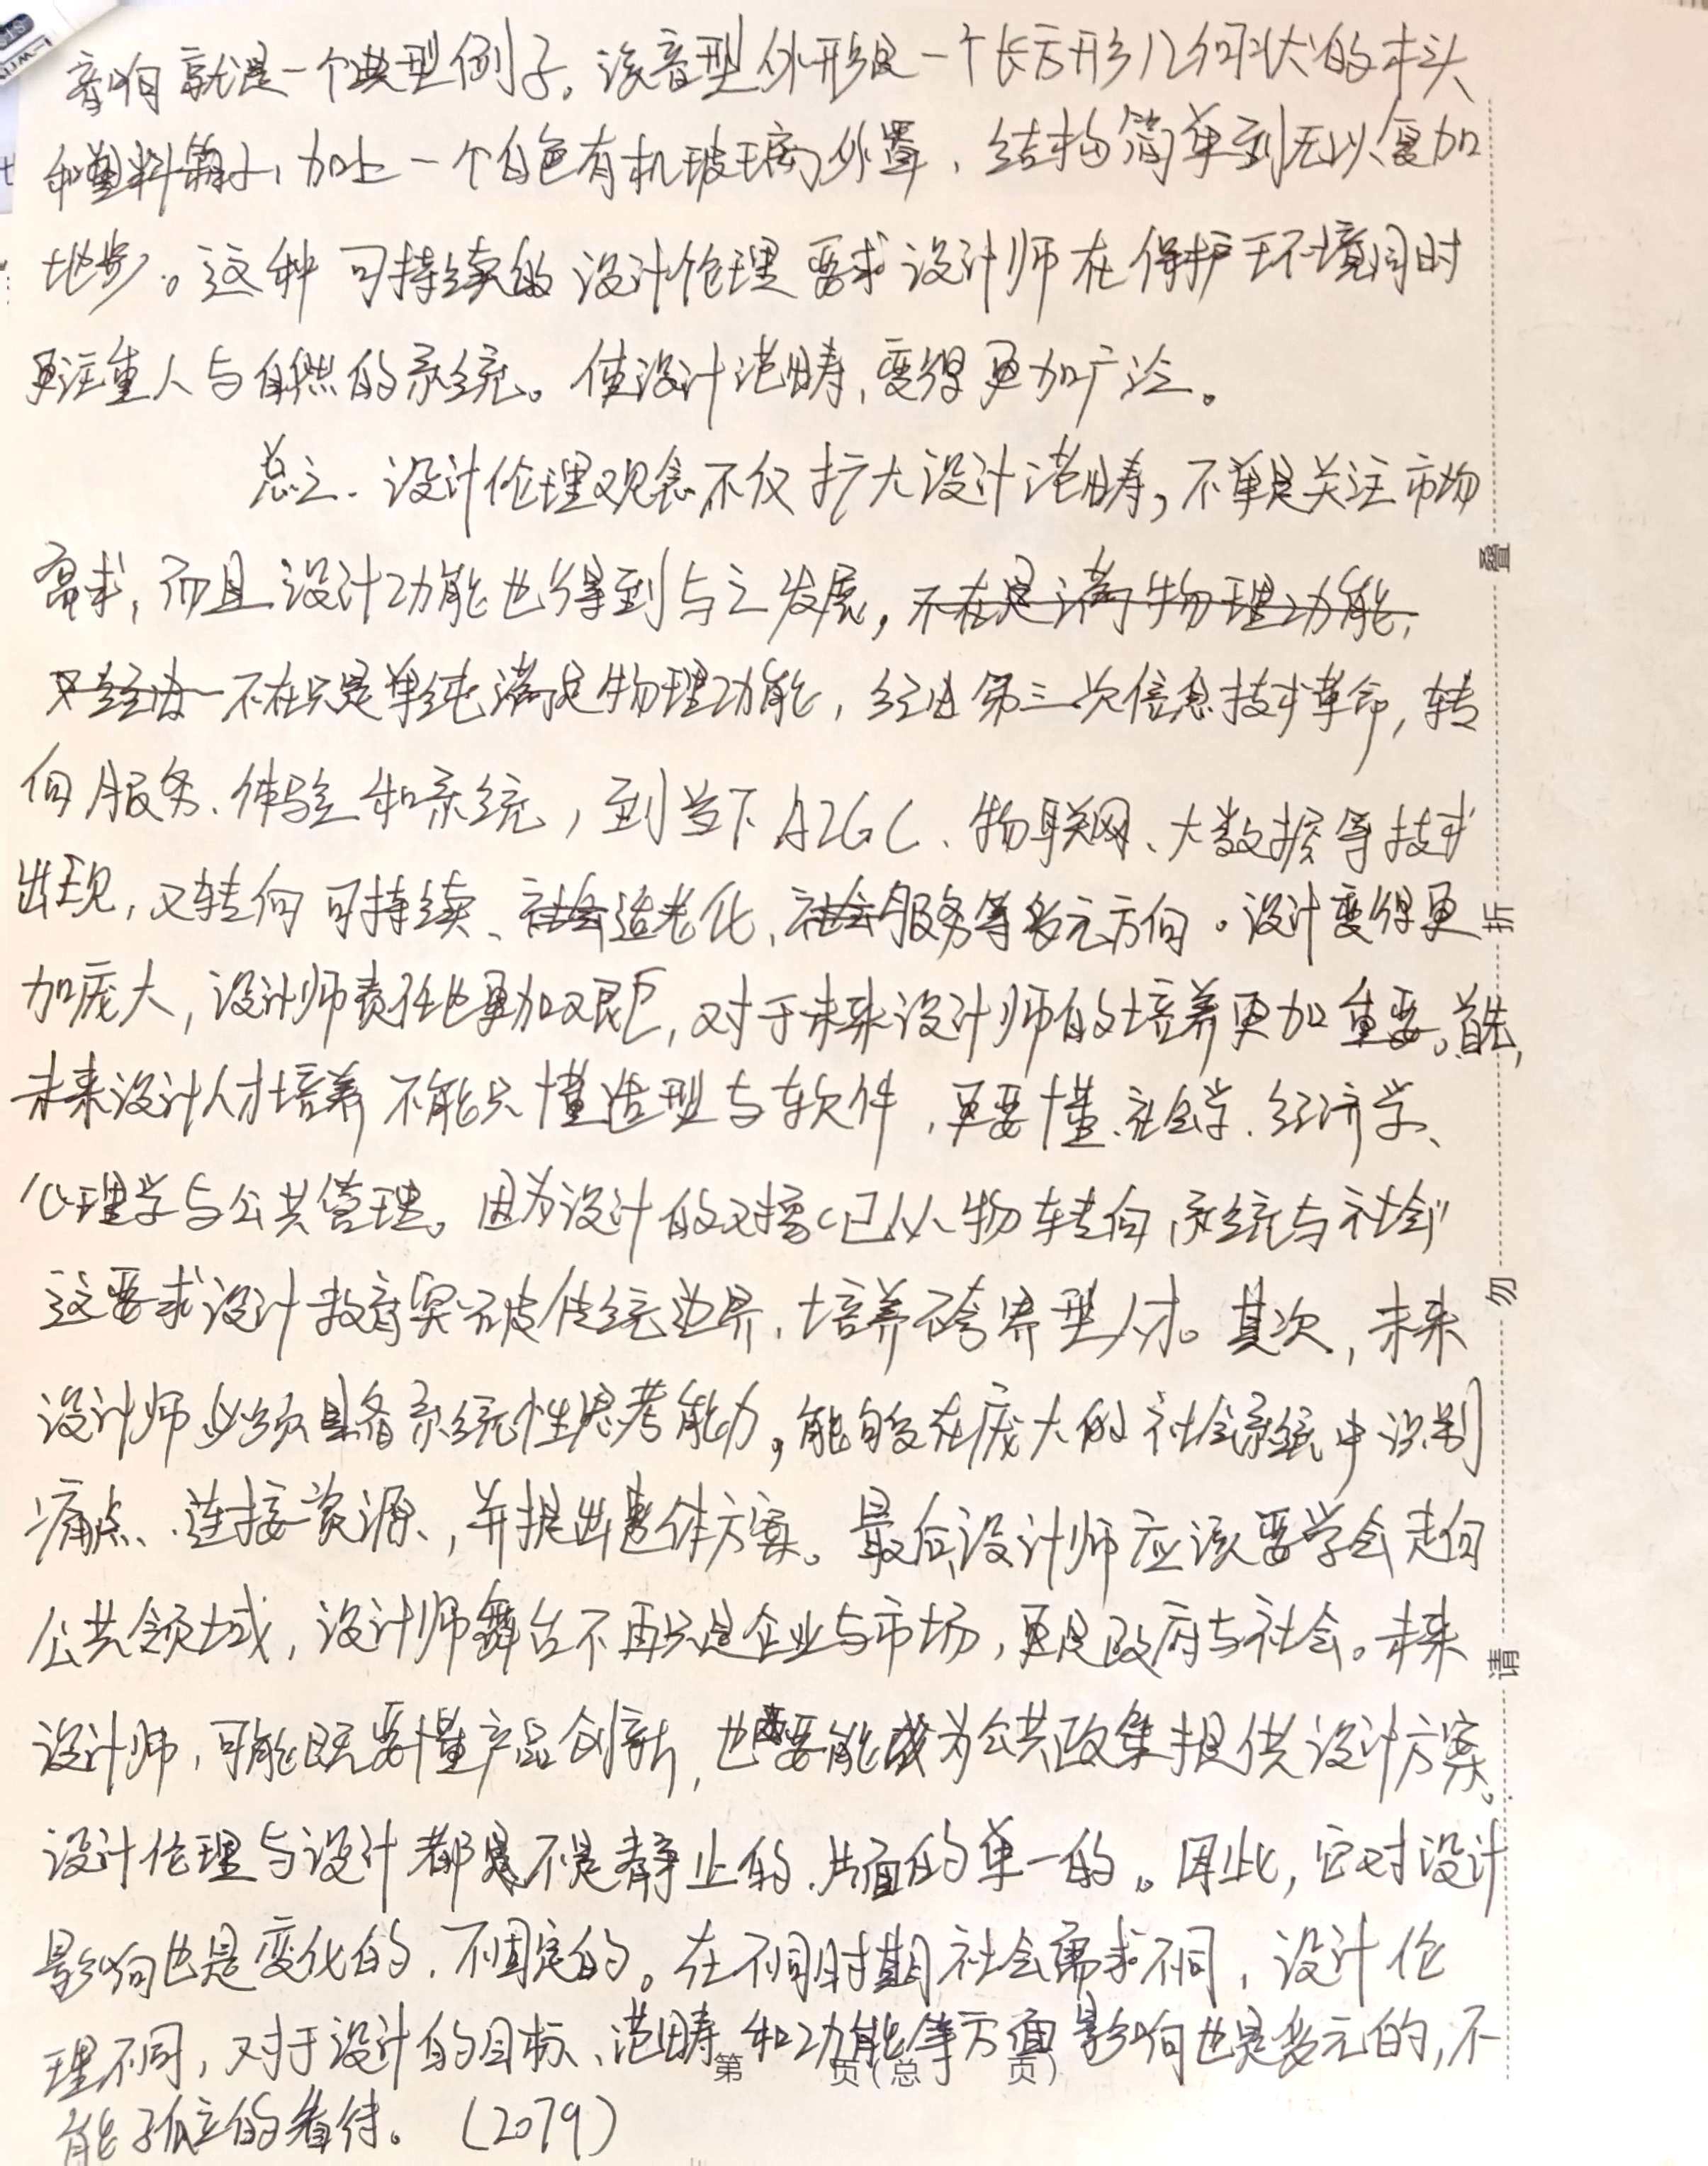 音响就是一个典型例子。该音型外形是一个长方形几何状的木头
和塑料箱子,加上一个白色有机玻璃外罩,结构简单到无以复加
地步。这种可持续的设计伦理要求设计师在保护环境同时
更注重人与自然的系统。使设计范畴,变得更加广泛。
总之、设计伦理观念不仅扩大设计范畴,不单是关注市场
需求,而且设计功能也得到与之发展,不在是满物理功能,
又经由一不在只是单纯满足物理功能,经由第三次信息技术革命,转
向服务、体验和系统,到当下AIGC、物联网、大数据等技术
出现,又转向可持续、社会适老化、社会服务等多元方向。设计变得更
加庞大,设计师责任也更加艰巨,对于未来设计师的培养更加重要。首先,
未来设计人才培养不能只懂造型与软件,更要懂社会学、经济学、
心理学与公共管理。因为设计的对象已从物转向系统与社会
这要求设计教育突破传统边界,培养跨界型人才。其次,未来
设计师必须具备系统性思考能力,能够在庞大的社会系统中识别
痛点、连接资源、并提出整体方案。最后设计师应该要学会走向
公共领域,设计师舞台不再只是企业与市场,更是政府与社会。未来
设计师,可能既要懂产品创新,也要能成为公共政策提供设计方案。
设计伦理与设计都是不是静止的、片面的单一的。因此,它对设计
影响也是变化的,不固定的。在不同时期社会需求不同,设计伦
理不同,对于设计的目标、范畴和功能等方面影响也是多元的,不
能孤立的看待。(2079)
第 页(总 页)
叠
折
勿
请